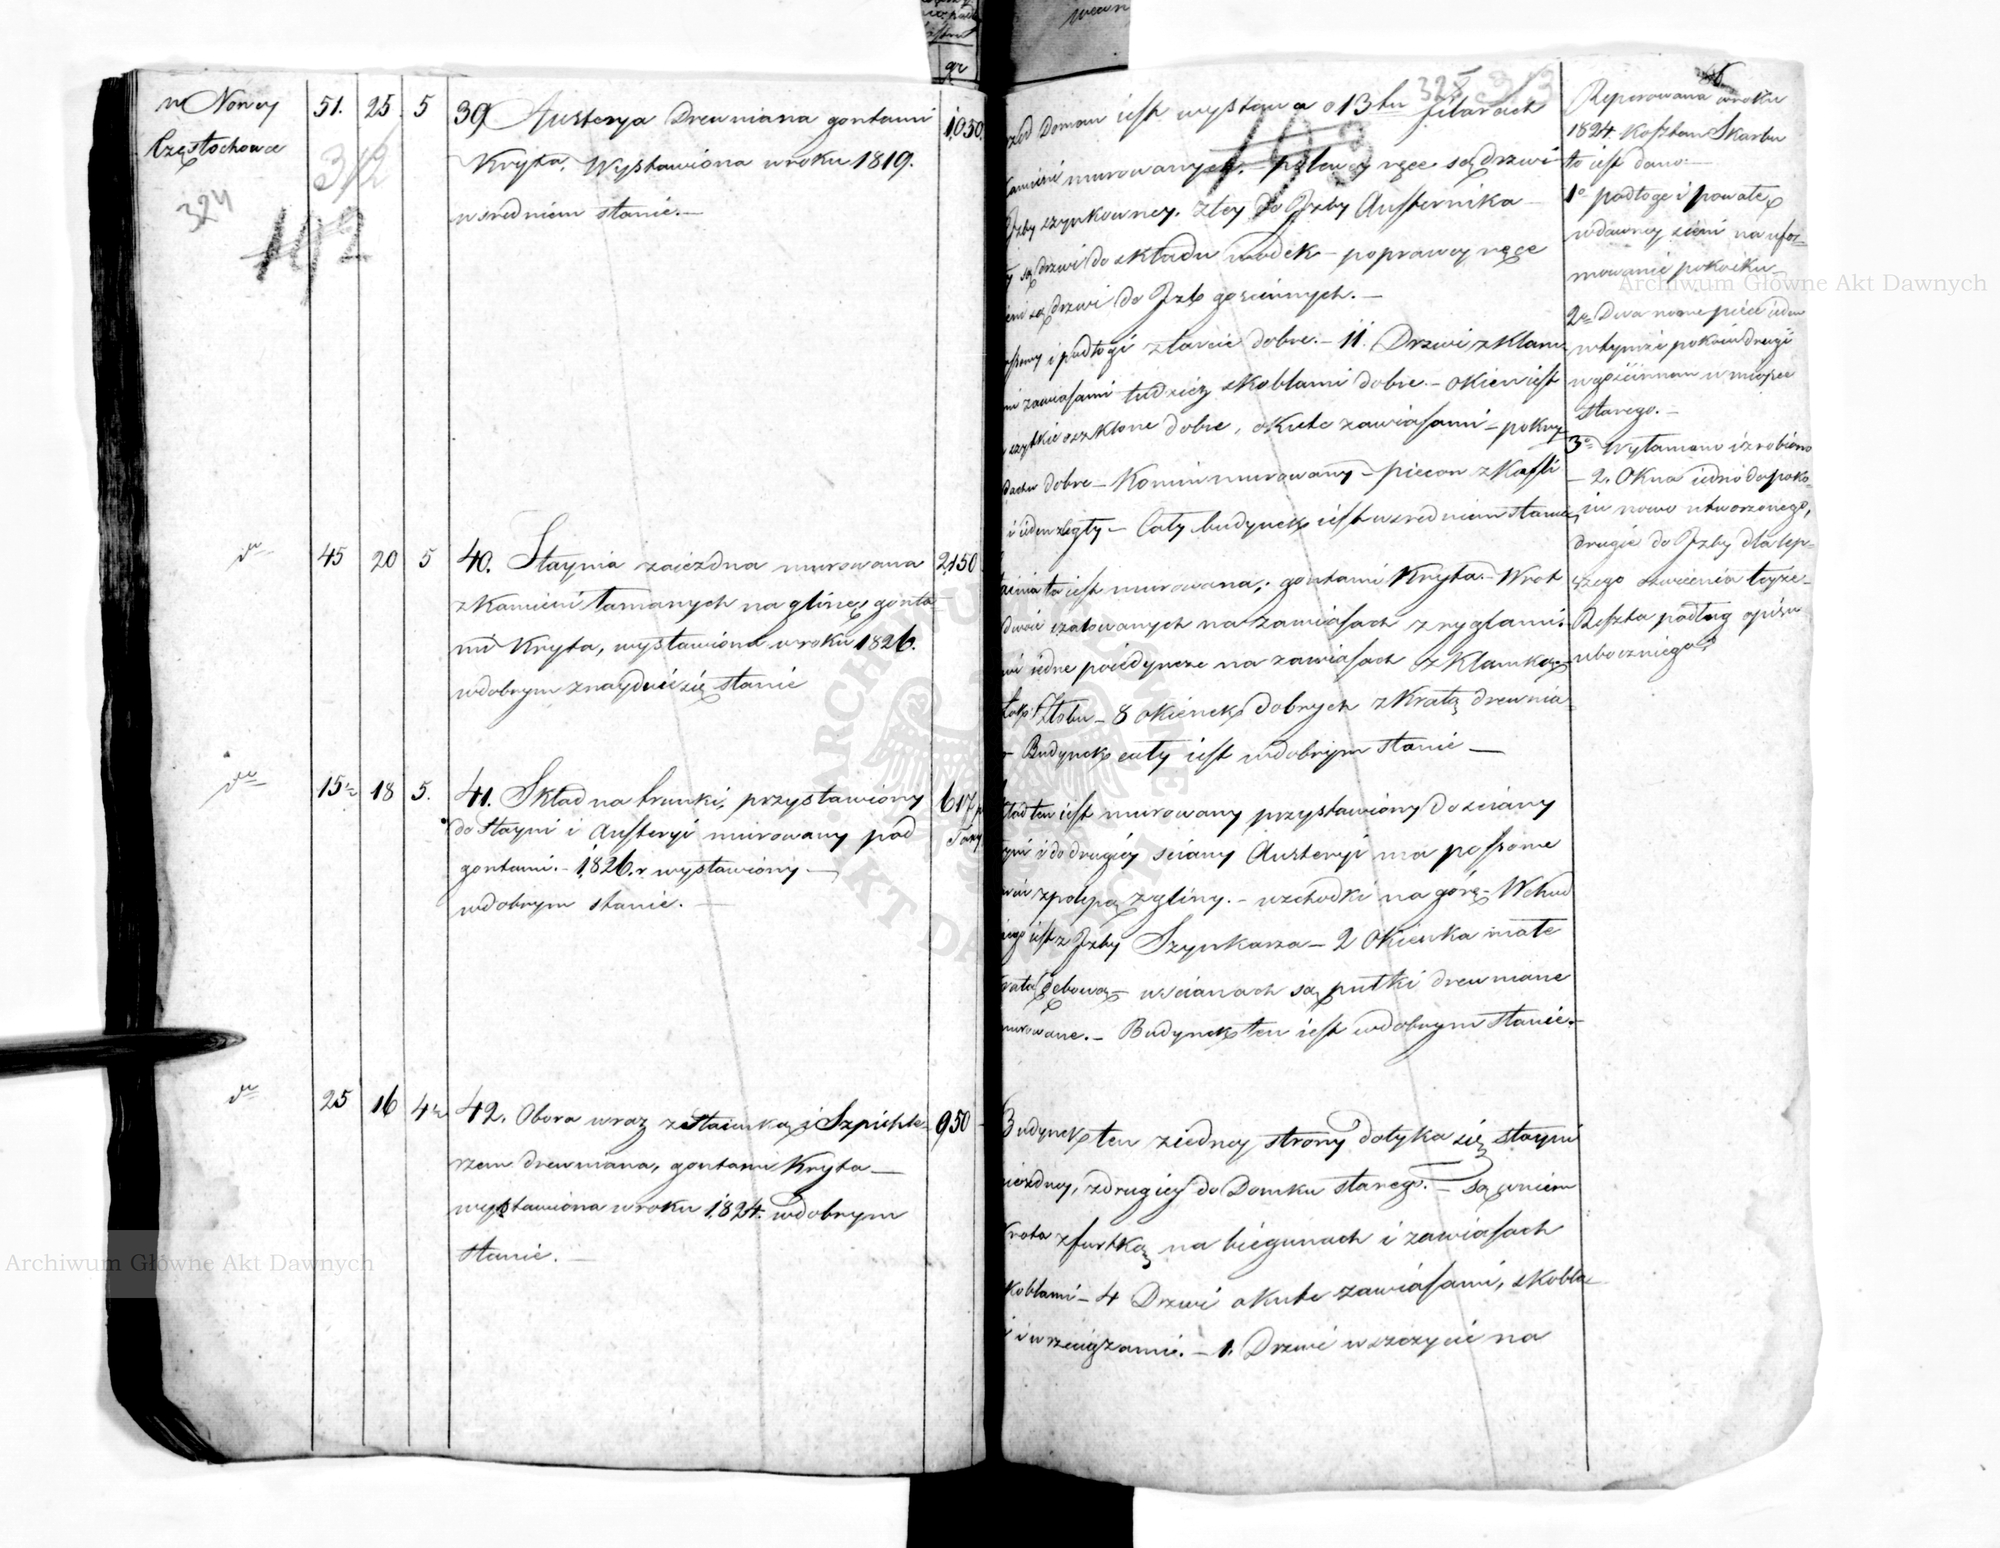 w Nowey
Częstochowie
324
312
192
51. 25. 5
39 Austerya Drewniana gontami
Kryta. Wystawiona w roku 1819.
w srednim stanie.—
1,050.
do 45 20 5
40. Staynia zaiezdna murowana
z Kamieni łamanych na glinę, gonta
mi Kryta, wystawiona w roku 1826.
w dobrym znayduie się stanie
2,150
do 15½ 18 5.
41. Skład na trunki, przystawiony
do Stayni i Austeryi murowany pod
gontami.— 1826. r wystawiony.—
w dobrym stanie.—
617
do 25 16 4½
42. Obora wraz z Staienką i Szpichle-
rzem drewniana, gontami Kryta—
wystawiona w roku 1824. w dobrym
stanie.—
950
325 313
193
Domem iest wystawa o 13tu filarach
murowanych.— po lewey ręce są drzwi
Izby szynkowney. z tey do Izby Austernika—
są drzwi do składu wódek— po prawey ręce
są drzwi do Izb goscinnych.—
i podłogi z tarcic dobre.— 11. Drzwi z Klam
zawiasami tudzież skoblami dobre.— okien iest
oszklone dobre, okute zawiasami— pokry
dobre— Komin murowany— piecow z Kafli
i ieden z cegły— Cały budynek iest w srednim stanie
ta iest murowana, gontami Kryta.— Wrot
na zawiasach z ryglami.
iedne poiedyncze na zawiasach z Klamką
żłobu— 8 okienek dobrych z Kratą drewnia
Budynek cały iest w dobrym stanie—
ten iest murowany przystawiony do sciany
i do drugiey sciany Austeryi ma possowe
z polepą z gliny.— wschodki na górę— Wchod
iest z Izby Szynkarza— 2 Okienka małe
dębową— w scianach są putki drewniane
murowane.— Budynek ten iest w dobrym stanie.—
Budynek ten z iedney strony dotyka się stayni
z drugiey do Domku starego.— są w niem
z furtką na biegunach i zawiasach
skoblami— 4 Drzwi okute zawiasami, skobla
i wrzeciązami.— 1. Drzwi w szczycie na
Reperowana w roku
1824 Kosztem Skarbu
to iest dano:—
1o podłogę i powałę
w dawney sieni na ufor-
mowanie pokoiku—
2o Dwa nowe piece ieden
w tymże pokoiu drugi
w goscinnem w miejsce
starego.—
3o Wyłamano i zrobiono
— 2. Okna iedno do poko-
iu nowo utworzonego,
drugie do Izby dla lep-
szego oswiecenia teyże—
Reszta podług opisu
ubocznego
Archiwum Główne Akt Dawnych
Archiwum Główne Akt Dawnych